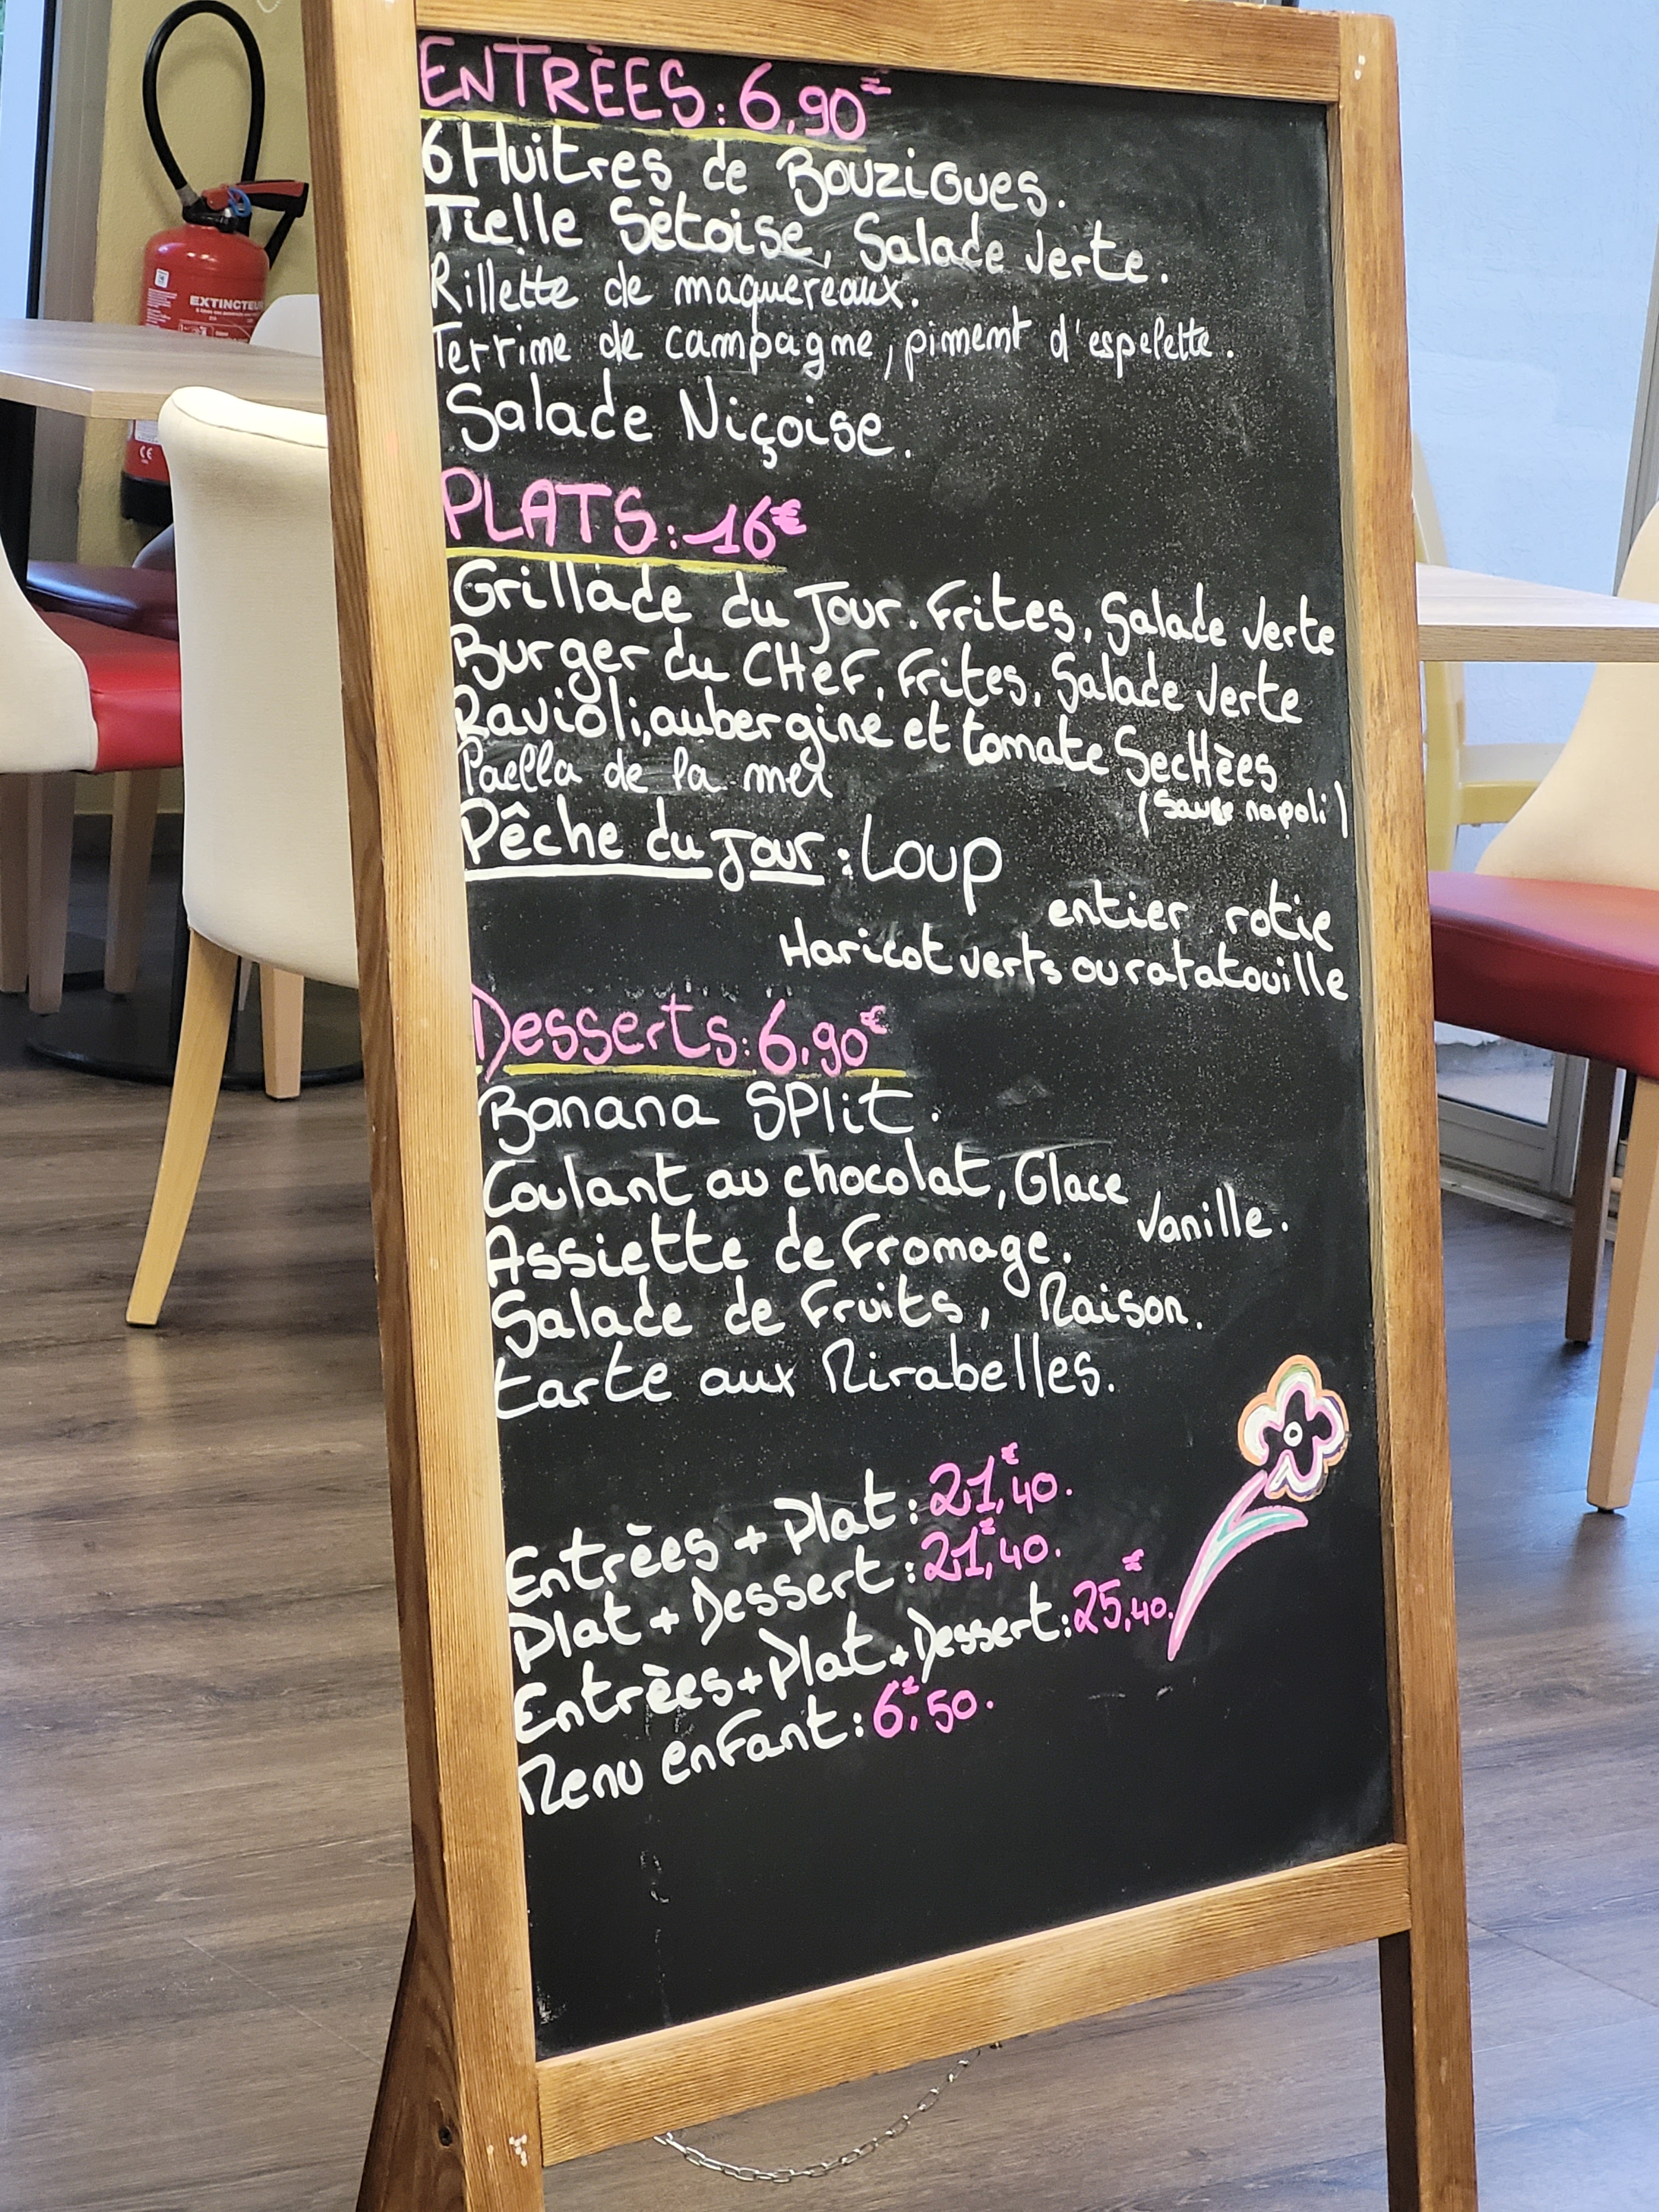 ENTRÈES: 6,90€
6 Huitres de Bouzigues.
Tielle Sètoise, Salade Verte.
Rillette de maquereaux.
Terrime de campagme, pimemt d'espelette.
Salade Niçoise.
PLATS: 16€
Grillade du Jour. Frites, Salade Verte
Burger du CHeF, Frites, Salade Verte
Ravioli, aubergine et tomate SecHèes
(Sauce napoli)
Paella de la mer
Pêche du Jour: Loup
entier rotie
Haricot verts ou ratatouille
Desserts: 6,90€
Banana SPlit.
Coulant au chocolat, Glace
Vanille.
Assiette de Fromage.
Salade de Fruits, Maison.
tarte aux Mirabelles.
Entrèes + Plat: 21€,40.
Plat + Dessert: 21€,40.
Entrèes + Plat + Dessert: 25€,40.
Menu enFant: 6€,50.
EXTINCTEUR